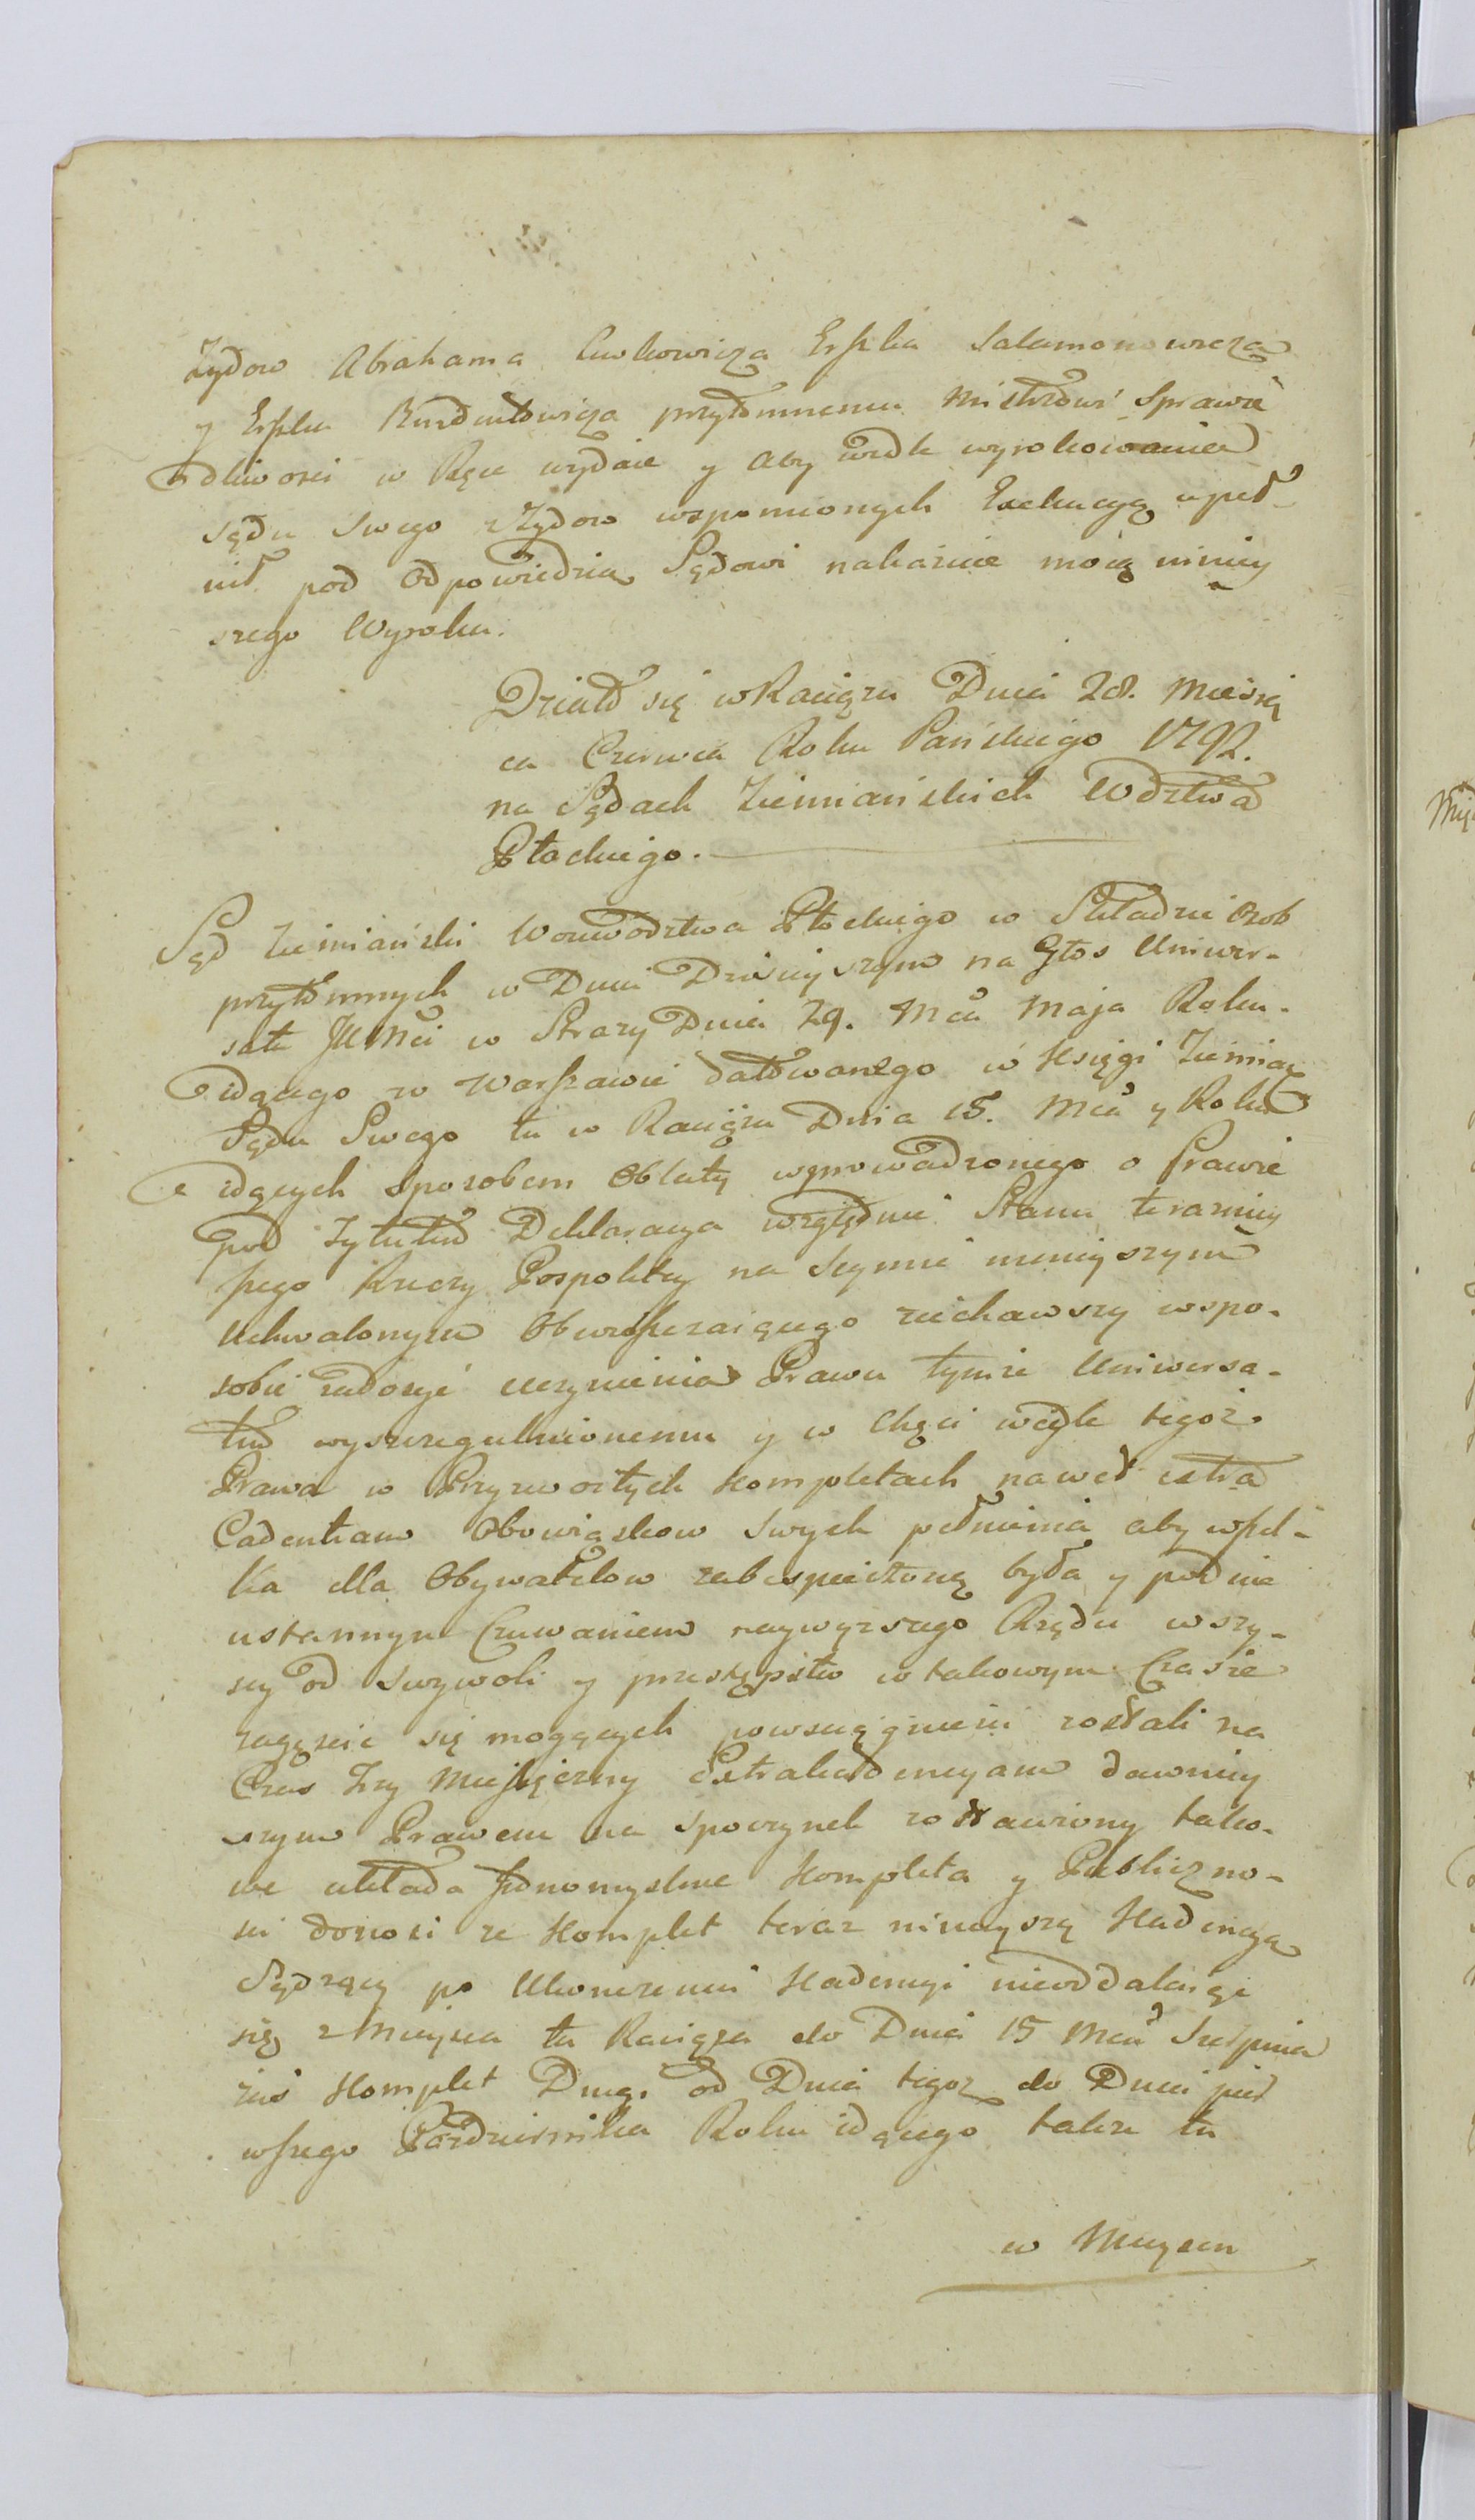 Żydow Abrahama Lwkowicza Erszka Salamonowicza
y Erszku przytomnemu Mistrzowi Sprawie
dliwosci w Ręce wydaie y aby wedle wyrokowania
sądu swego z Żydow wspomionych Exekucyą upeł-
nił pod odpowiedzią Sądowi nakazuie mocą niniey
szego Wyroku.
Działo się w Raciążu Dnia 28. Miesią
ca Czerwca Roku Pańskiego 1792.
na Sądach Ziemiańskich Wdztwa
Płockiego.
Sąd Ziemiański Woiewodztwa Płockiego w Składzie Osob
przytomnych w Dniu Dzisieyszym na Głos Uniwer-
sału JKMci w Straży Dnia 29. Mca Maja Roku
idącego w Warszawie datowanego w Księgi Ziemiań
Sądu Swego tu w Raciążu Dnia 15. Mca y Roku
idących sposobem Oblaty wprowadzonego o Prawie
pod Tytułem Deklaracya względnie Stanu teraźniey
szego Rzeczy Pospolitey na Seymie ninieyszym
Uchwalonym Obwieszczaiącego ziechawszy wspo-
sobie zadosyć uczynienia Prawu tymże Uniwersa-
łem wyszczegulnionemu y w Chęci wedle tegoż
Prawa w Przyzwoitych Kompletach nawet extra
Cadentiam Obowiązkow Swych pełnienia aby wszel-
ka dla Obywatelow zabespieczoną była y pod nie
ustannym Czuwaniem naywyższego Rządu wszy-
scy od swywoli y przestępstw w takowym Czasie
zagęścić się mogących powsciągnieni zostali na
Czas Trzy Miesięczny Extrakadencyami dawniey
szym Prawem na spoczynek zostawiony tako-
we układa Jednomyslnie Kompleta y Publiczno-
sci donosi że Komplet teraz ninieyszą Kadencyą
Sądzący po Ukonczeniu Kadencyi nieoddalaiąc
się z Mieysca tu Raciąża do Dnia 15 Mca Sierpnia
zaś Komplet Drug. od Dnia tegoż do Dnia pier
wszego Pazdziernika Roku idącego także tu
w Mieyscu